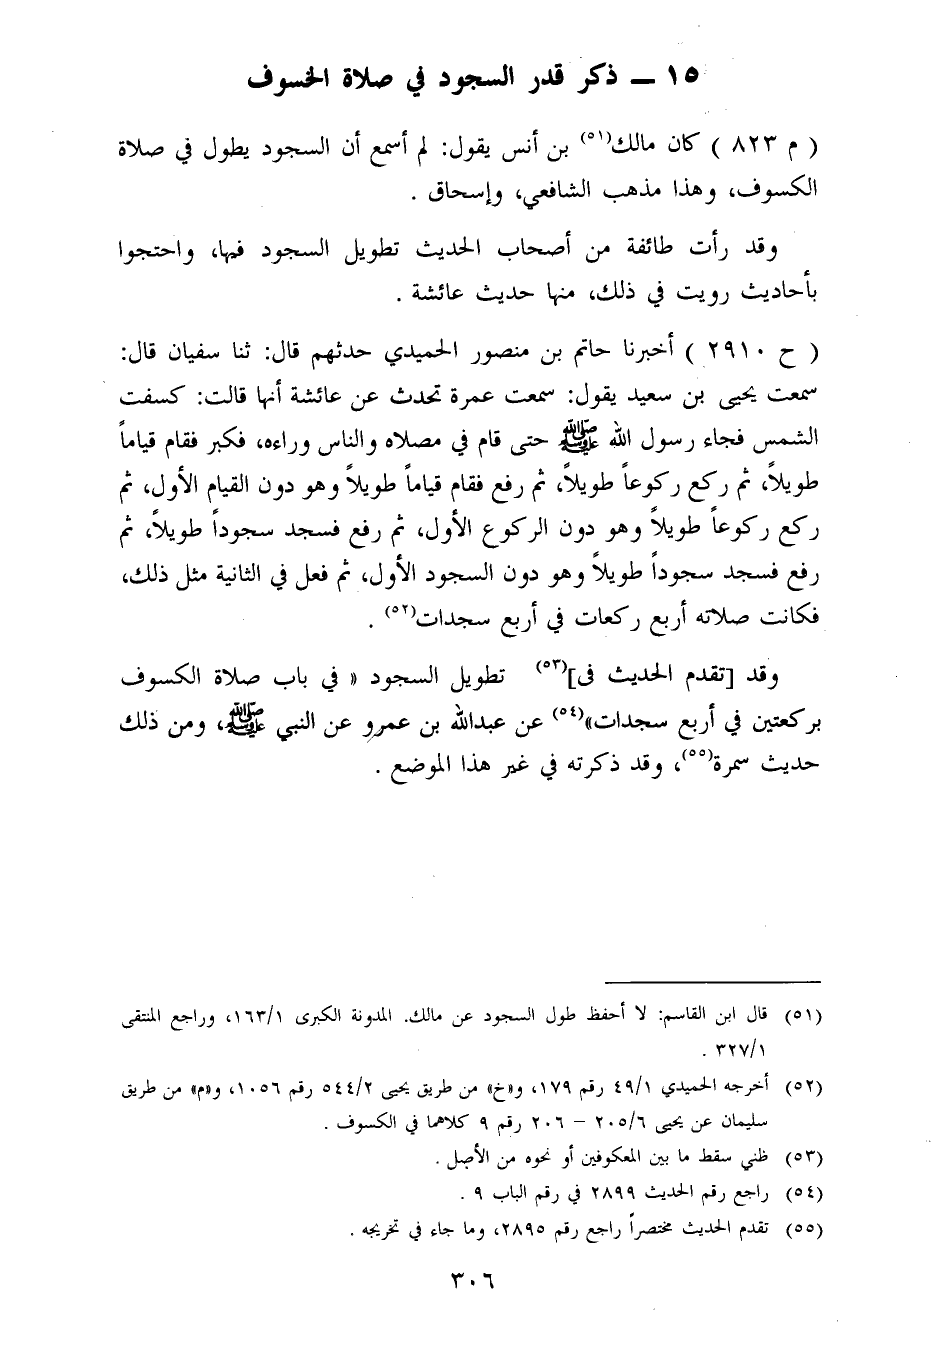 ١٥ ــ ذكر قدر السجود في صلاة الخسوف
( م ٨٢٣ ) كان مالك(٥١) بن أنس يقول: لم أسمع أن السجود يطول في صلاة
الكسوف، وهذا مذهب الشافعي، وإسحاق .
وقد رأت طائفة من أصحاب الحديث تطويل السجود فيها، واحتجوا
بأحاديث رويت في ذلك، منها حديث عائشة .
( ح ٢٩١٠ ) أخبرنا حاتم بن منصور الحميدي حدثهم قال: ثنا سفيان قال:
سمعت يحيى بن سعيد يقول: سمعت عمرة تحدث عن عائشة أنها قالت: كسفت
الشمس فجاء رسول الله ﷺ حتى قام في مصلاه والناس وراءه، فكبر فقام قياماً
طويلاً، ثم ركع ركوعاً طويلاً، ثم رفع فقام قياماً طويلاً وهو دون القيام الأول، ثم
ركع ركوعاً طويلاً وهو دون الركوع الأول، ثم رفع فسجد سجوداً طويلاً، ثم
رفع فسجد سجوداً طويلاً وهو دون السجود الأول، ثم فعل في الثانية مثل ذلك،
فكانت صلاته أربع ركعات في أربع سجدات(٥٢) .
وقد [تقدم الحديث فى](٥٣) تطويل السجود « في باب صلاة الكسوف
بركعتين في أربع سجدات»(٥٤) عن عبدالله بن عمرو عن النبي ﷺ، ومن ذلك
حديث سمرة(٥٥)، وقد ذكرته في غير هذا الموضع .
(٥١) قال ابن القاسم: لا أحفظ طول السجود عن مالك. المدونة الكبرى ١٦٣/١، وراجع المنتقى
٣٢٧/١ .
(٥٢) أخرجه الحميدي ٤٩/١ رقم ١٧٩، و«خ» من طريق يحيى ٥٤٤/٢ رقم ١٠٥٦، و«م» من طريق
سليمان عن يحيى ٢٠٥/٦ – ٢٠٦ رقم ٩ كلاهما في الكسوف .
(٥٣) ظني سقط ما بين المعكوفين أو نحوه من الأصل .
(٥٤) راجع رقم الحديث ٢٨٩٩ في رقم الباب ٩ .
(٥٥) تقدم الحديث مختصراً راجع رقم ٢٨٩٥، وما جاء في تخريجه .
٣٠٦